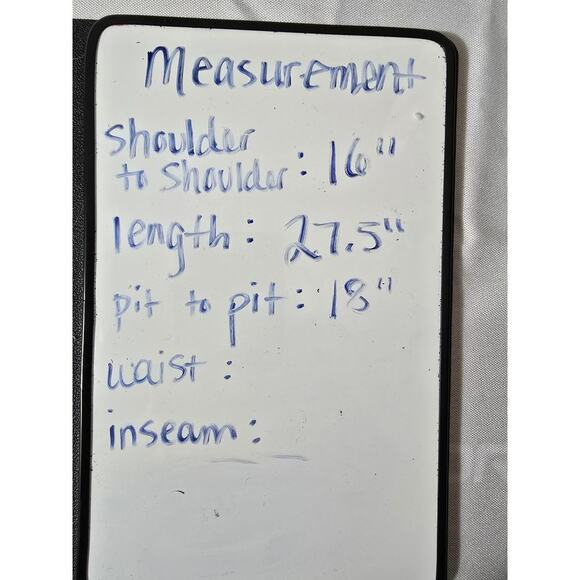 Measurement
Shoulder
to Shoulder: 16"
length: 27.5"
pit to pit: 18"
waist:
inseam: